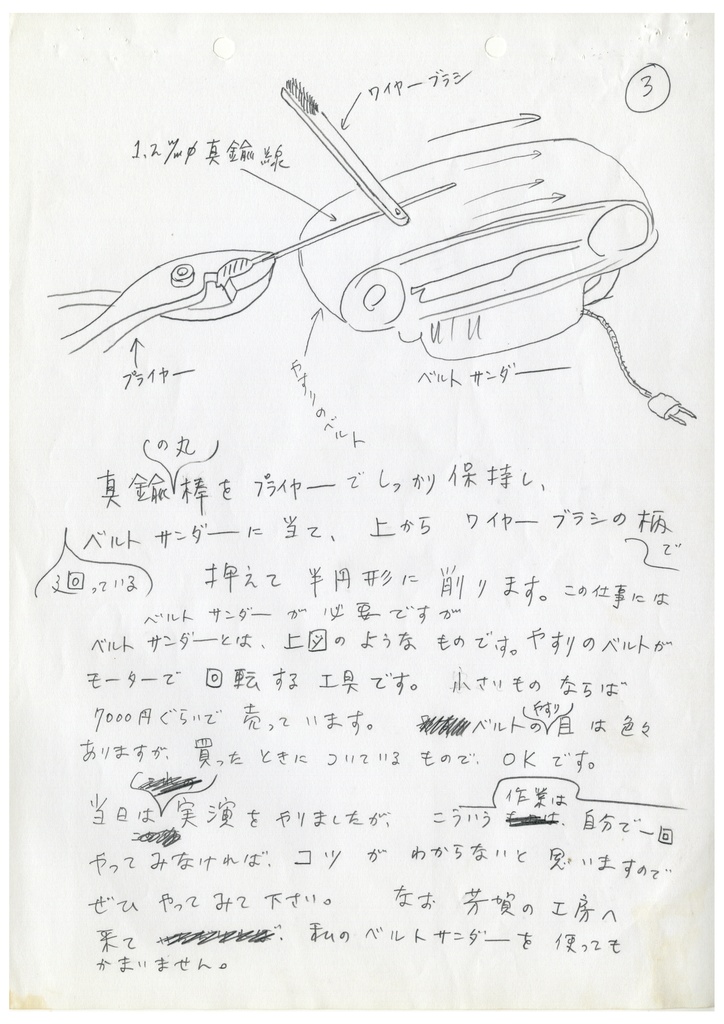 3
ワイヤーブラシ
1.2m/mφ真鍮線
プライヤー
やすりのベルト
ベルトサンダー
の丸
真鍮棒をプライヤーでしっかり保持し、
ベルトサンダーに当て、上からワイヤーブラシの柄で
回っている
押えて半円形に削ります。この仕事には
ベルトサンダーが必要ですが
ベルトサンダーとは、上図のようなものです。やすりのベルトが
モーターで回転する工具です。小さいものならば
7000円ぐらいで売っています。ベルトのやすり目は色々
ありますが、買ったときについているもので、OKです。
作業は
当日は実演をやりましたが、こういう 自分で一回
やってみなければ、コツがわからないと思いますので
ぜひやってみて下さい。なお芳賀の工房へ
来て 私のベルトサンダーを使っても
かまいません。